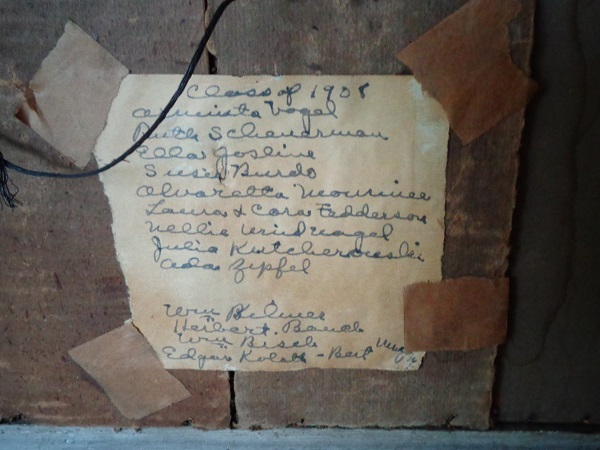 Class of 1908
Araminta Vogel
Ruth Scheuerman
Ella Josline
Susie Burdo
Alvaretta Mourniee
Laura & Cora Fedderson
Nellie Windnagel
Julia Kutcherowski
Ada Zipfel
Wm Belmer
Herbert Bauch
Wm Bisch
Edgar - Bert